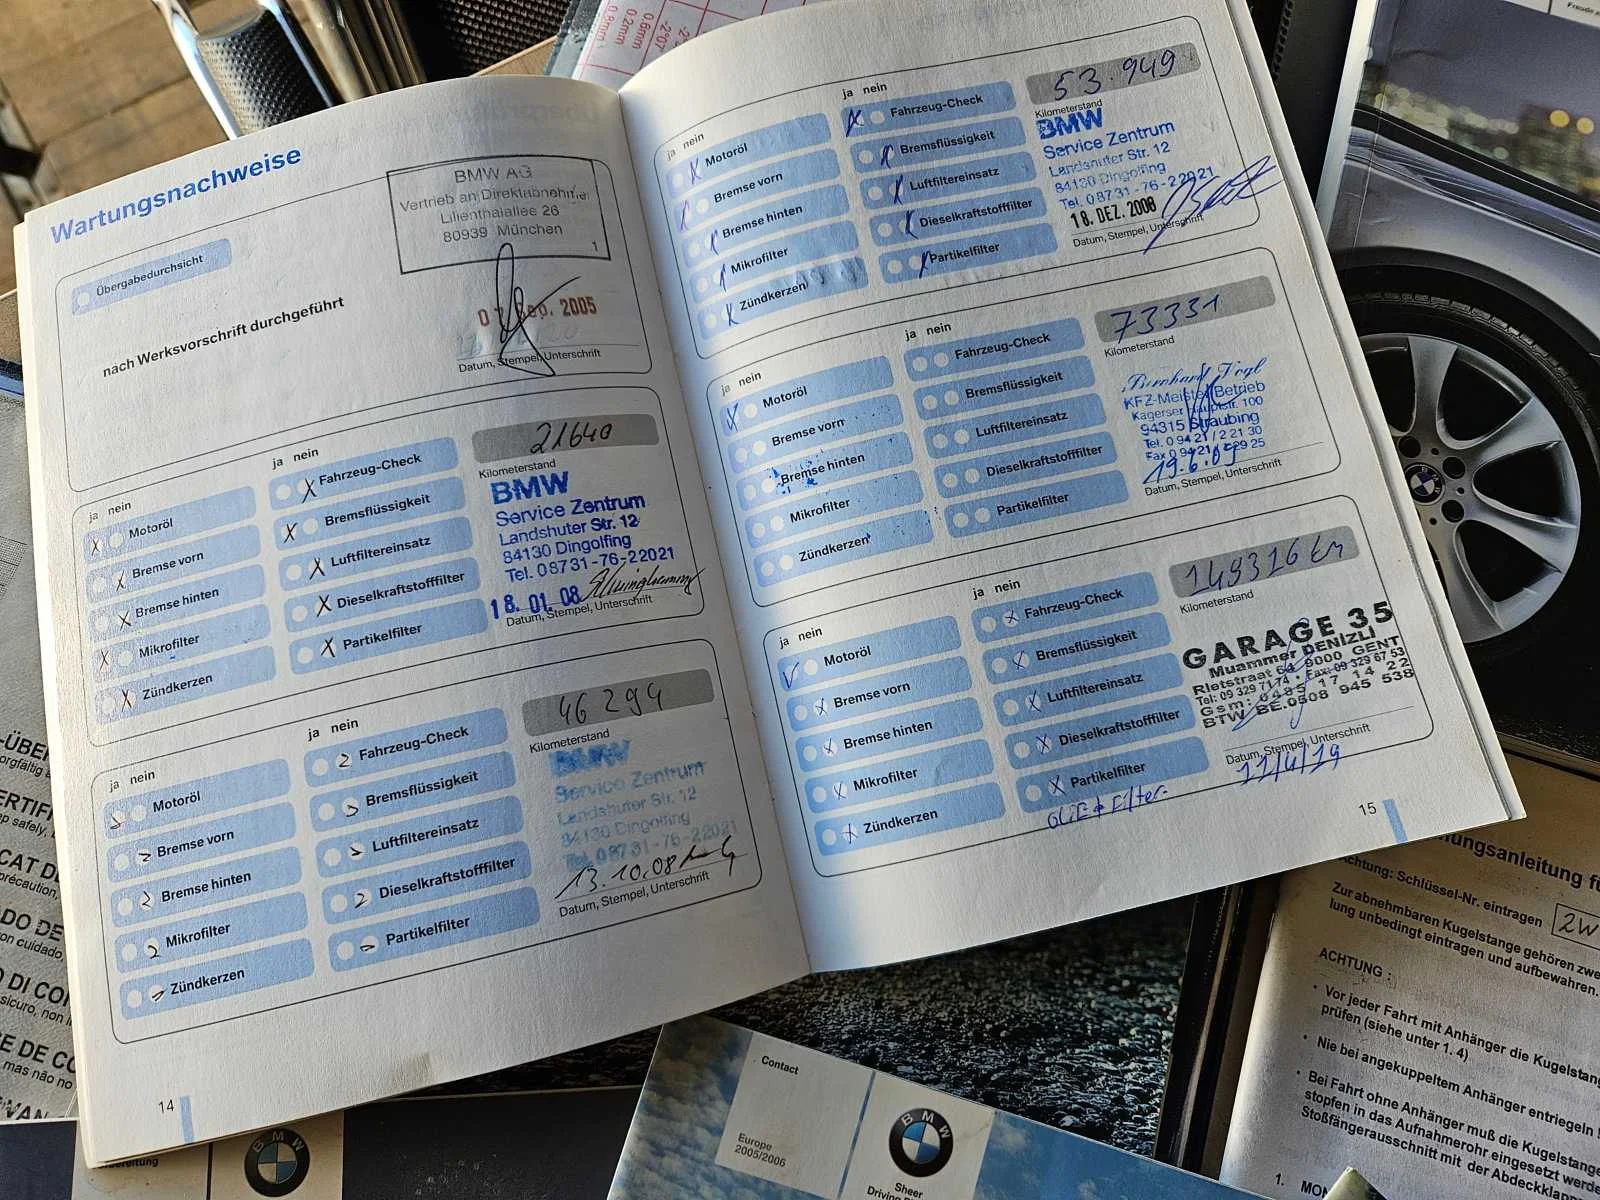 Wartungsnachweise
Übergabedurchsicht
nach Werksvorschrift durchgeführt
BMW AG
Vertrieb an Direktabnehmer
Lilienthalallee 26
80939 München
1
2005
Datum, Stempel, Unterschrift
ja nein
Motoröl
Bremse vorn
Bremse hinten
Mikrofilter
Zündkerzen
ja nein
Fahrzeug-Check
Bremsflüssigkeit
Luftfiltereinsatz
Dieselkraftstofffilter
Partikelfilter
21640
Kilometerstand
BMW
Service Zentrum
Landshuter Str. 12
84130 Dingolfing
Tel. 08731-76-22021
18. 01. 08
Datum, Stempel, Unterschrift
ja nein
Motoröl
Bremse vorn
Bremse hinten
Mikrofilter
Zündkerzen
ja nein
Fahrzeug-Check
Bremsflüssigkeit
Luftfiltereinsatz
Dieselkraftstofffilter
Partikelfilter
46 294
Kilometerstand
BMW
Service Zentrum
Landshuter Str. 12
84130 Dingolfing
Tel. 08731-76-22021
13.10.08
Datum, Stempel, Unterschrift
14
ja nein
Motoröl
Bremse vorn
Bremse hinten
Mikrofilter
Zündkerzen
ja nein
Fahrzeug-Check
Bremsflüssigkeit
Luftfiltereinsatz
Dieselkraftstofffilter
Partikelfilter
53.949
Kilometerstand
BMW
Service Zentrum
Landshuter Str. 12
84130 Dingolfing
Tel. 08731-76-22021
18. DEZ. 2008
Datum, Stempel, Unterschrift
ja nein
Motoröl
Bremse vorn
Bremse hinten
Mikrofilter
Zündkerzen
ja nein
Fahrzeug-Check
Bremsflüssigkeit
Luftfiltereinsatz
Dieselkraftstofffilter
Partikelfilter
73331
Kilometerstand
Bernhard Vogl
KFZ-Meister Betrieb
Kagerser Hauptstr. 100
94315 Straubing
Tel. 0 94 21 / 2 21 30
Fax 0 94 21 / 29 25
19.6.09
Datum, Stempel, Unterschrift
ja nein
Motoröl
Bremse vorn
Bremse hinten
Mikrofilter
Zündkerzen
ja nein
Fahrzeug-Check
Bremsflüssigkeit
Luftfiltereinsatz
Dieselkraftstofffilter
Partikelfilter
149316 km
Kilometerstand
GARAGE 35
Muammer DENİZLİ
Rietstraat 64 9000 GENT
Tel: 09 329 71 74 • Fax: 09 329 67 53
Gsm: 0485 17 14 22
BTW BE.0508 945 538
Datum, Stempel, Unterschrift
11/4/19
OLIE + Filter.
15
0.8mm
0.2mm
0.6mm
Contact
Europe
2005/2006
BMW
Sheer
BMW
Achtung: Schlüssel-Nr. eintragen
2W
Zur abnehmbaren Kugelstange gehören
lung unbedingt eintragen und aufbewahren.
ACHTUNG :
• Vor jeder Fahrt mit Anhänger die
prüfen (siehe unter 1. 4)
• Nie bei angekuppeltem Anhänger entriegeln !
• Bei Fahrt ohne Anhänger muß die
stopfen in das Aufnahmerohr eingesetzt
Stoßfängerausschnitt mit der
1.